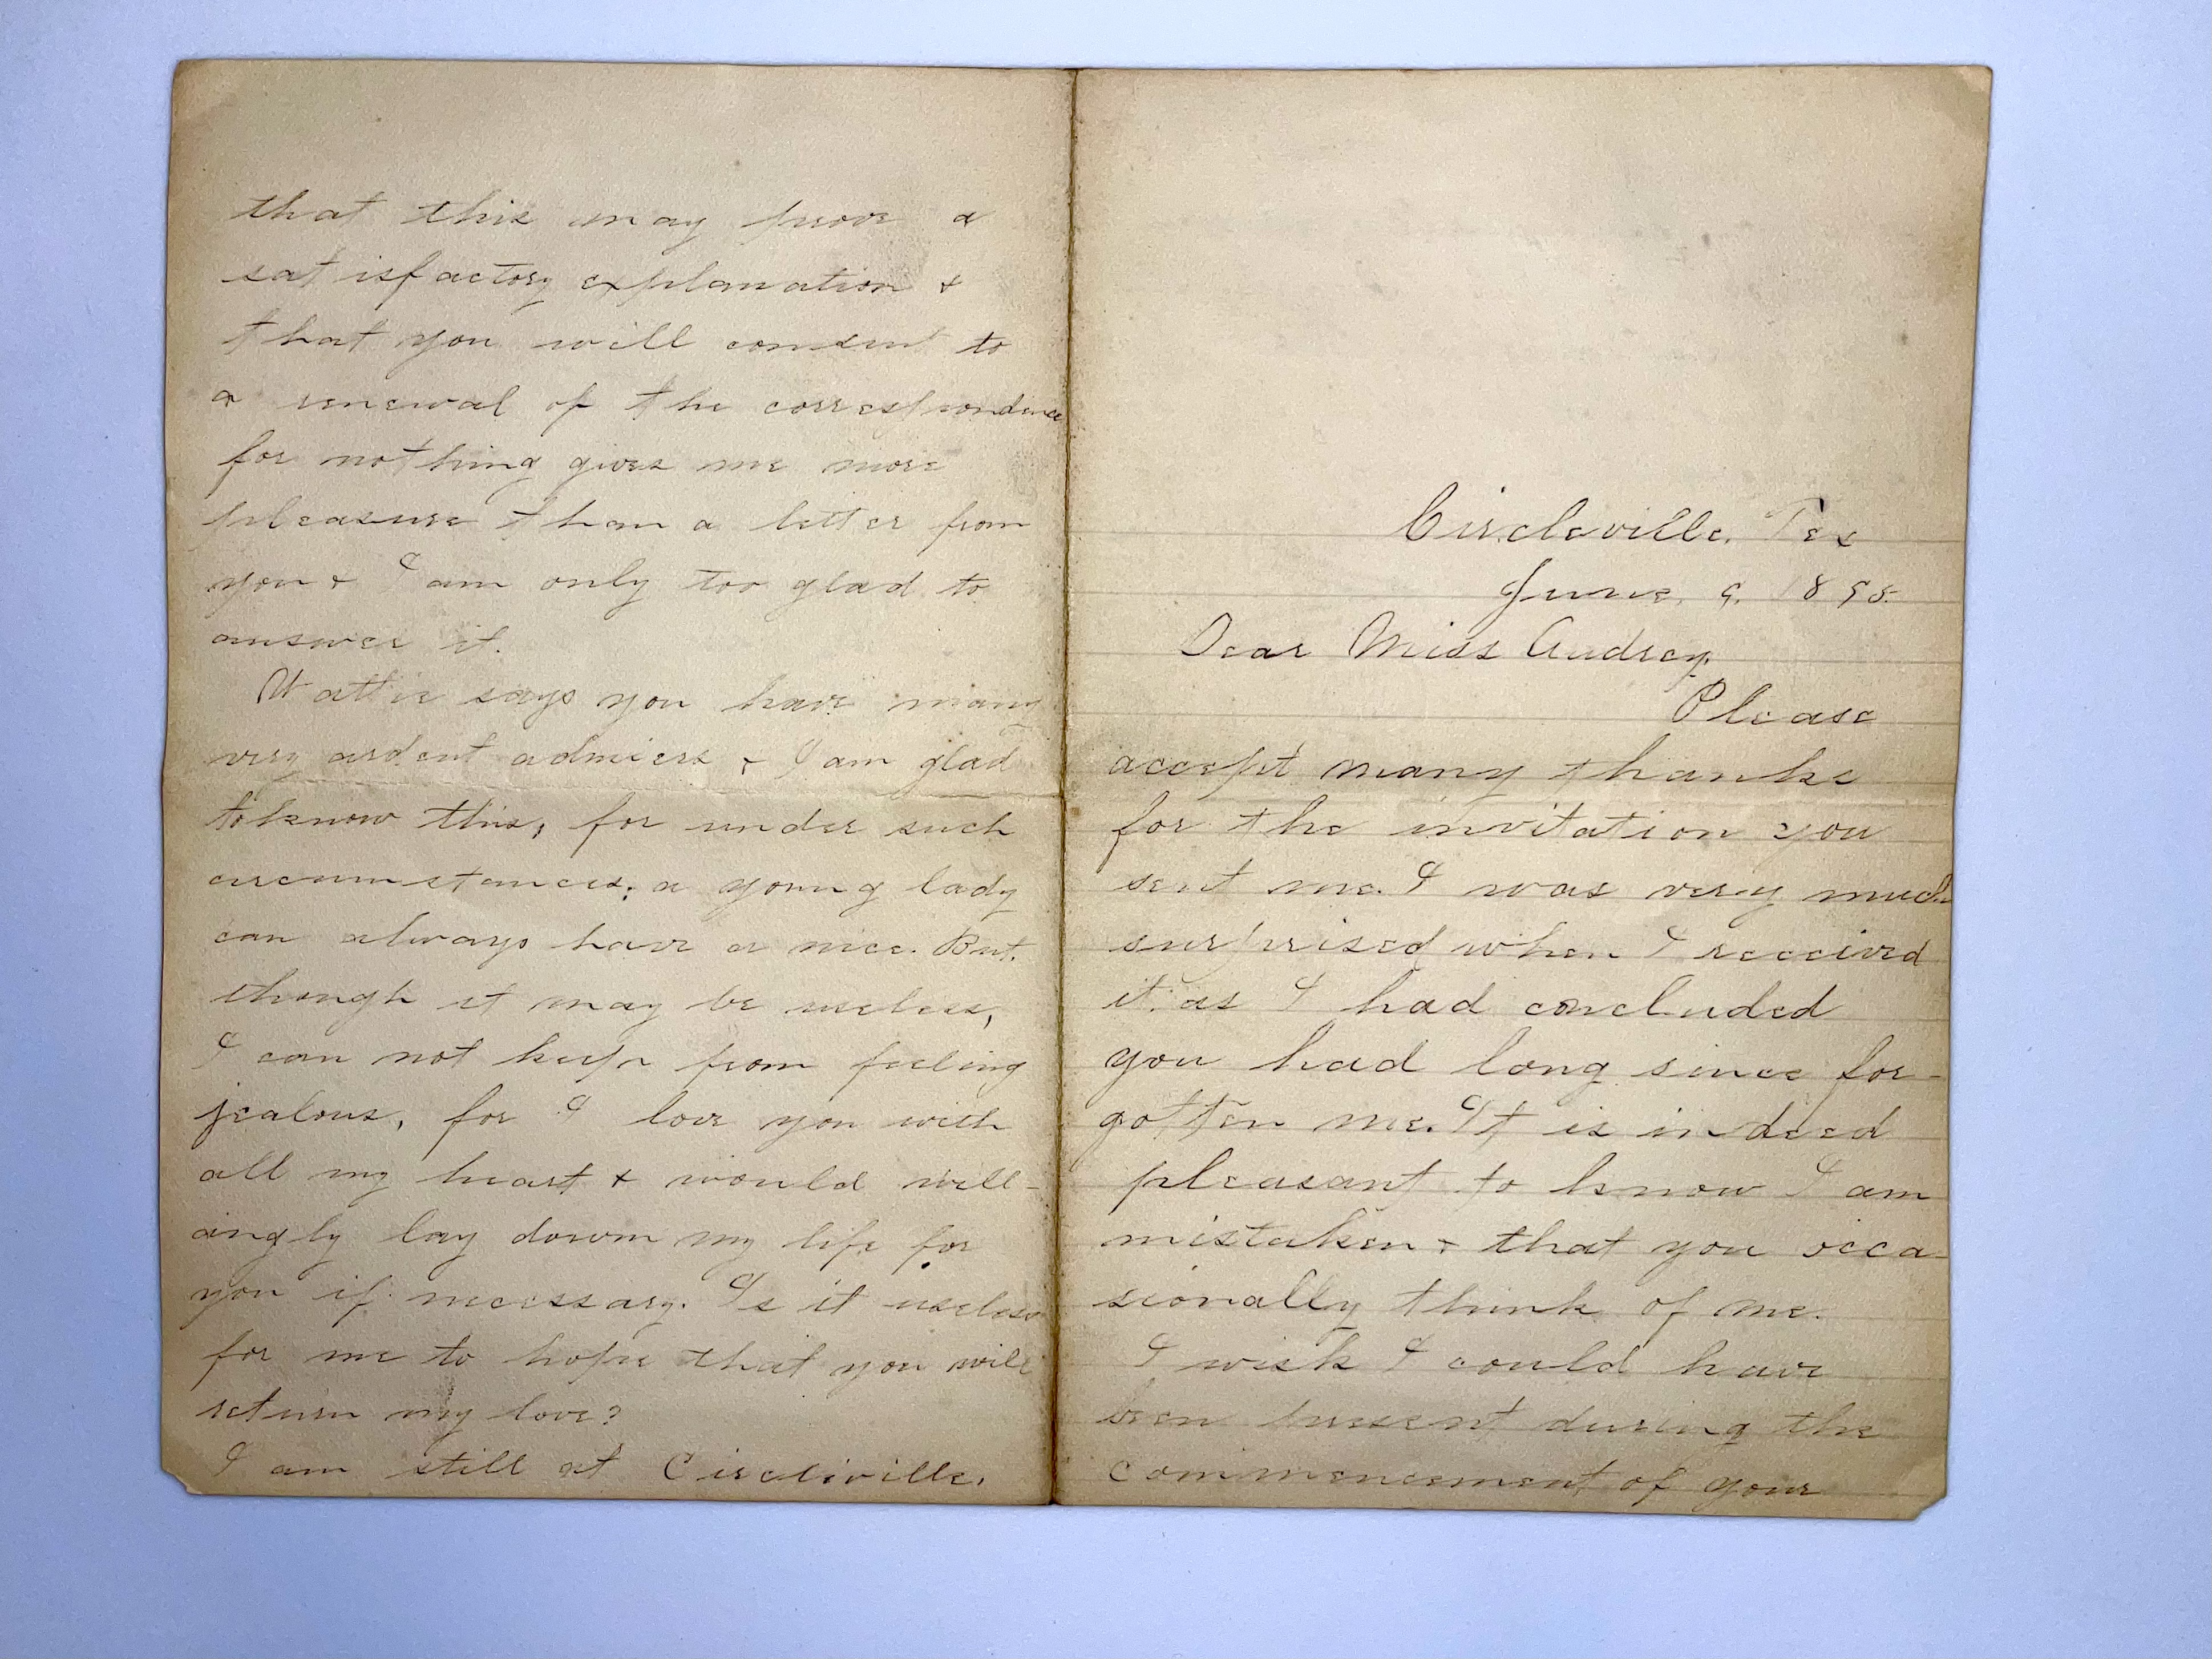 Circleville. Tex
June, 9. 1895.
Dear Miss Audrey.
Please
accept many thanks
for the invitation you
sent me. I was very much
surprised when I received
it as I had concluded
you had long since for-
gotten me. It is indeed
pleasant to know I am
mistaken & that you occa-
sionally think of me.
I wish I could have
been present during the
commencement of your
that this may prove a
satisfactory explanation &
that you will consent to
a renewal of the correspondence
for nothing gives me more
pleasure than a letter from
you & I am only too glad to
answer it.
Hattie says you have many
very ardent admiers & I am glad
to know this, for under such
circumstances, a young lady
can always have a nice. But,
though it may be useless,
I can not keep from feeling
jealous, for I love you with
all my heart & would will-
ingly lay down my life for
you if necessary. Is it useless
for me to hope that you will
return my love?
I am still at Circleville,